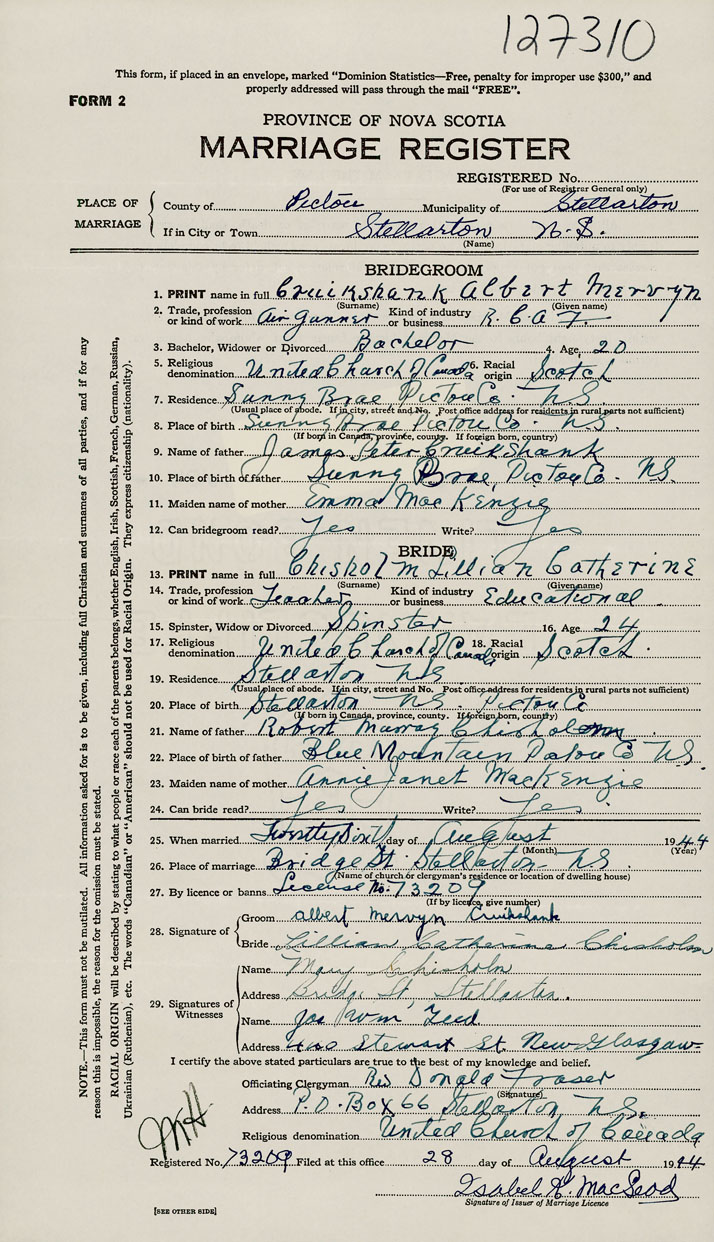 127310
This form, if placed in an envelope, marked "Dominion Statistics—Free, penalty for improper use $300," and
properly addressed will pass through the mail "FREE".
FORM 2
PROVINCE OF NOVA SCOTIA
MARRIAGE REGISTER
REGISTERED No.
(For use of Registrar General only)
PLACE OF MARRIAGE
County of Pictou Municipality of Stellarton
If in City or Town Stellarton N.S.
(Name)
BRIDEGROOM
1. PRINT name in full Cruikshank Albert Mervyn
(Surname) (Given name)
2. Trade, profession or kind of work Air Gunner Kind of industry or business R.C.A.F.
3. Bachelor, Widower or Divorced Bachelor 4. Age 20
5. Religious denomination United Church of Canada 6. Racial origin Scotch
7. Residence Sunny Brae Pictou Co. N.S.
(Usual place of abode. If in city, street and No. Post office address for residents in rural parts not sufficient)
8. Place of birth Sunny Brae Pictou Co. N.S.
(If born in Canada, province, county. If foreign born, country)
9. Name of father James Peter CruikShank
10. Place of birth of father Sunny Brae, Pictou Co. NS.
11. Maiden name of mother Emma MacKenzie
12. Can bridegroom read? Yes Write? Yes
BRIDE
13. PRINT name in full Chisholm Lillian Catherine
(Surname) (Given name)
14. Trade, profession or kind of work Teacher Kind of industry or business Educational
15. Spinster, Widow or Divorced Spinster 16. Age 24
17. Religious denomination United Church of Canada 18. Racial origin Scotch.
19. Residence Stellarton NS
(Usual place of abode. If in city, street and No. Post office address for residents in rural parts not sufficient)
20. Place of birth Stellarton NS. Pictou Co
(If born in Canada, province, county. If foreign born, country)
21. Name of father Robert Murray Chisholm
22. Place of birth of father Blue Mountain Pictou Co N.S.
23. Maiden name of mother Annie Janet MacKenzie
24. Can bride read? Yes Write? Yes.
25. When married Twenty Sixth day of August 1944
(Month) (Year)
26. Place of marriage Bridge St. Stellarton NS.
(Name of church or clergyman's residence or location of dwelling house)
27. By licence or banns License No. 73209
(If by licence, give number)
28. Signature of
Groom albert mervyn Cruikshank
Bride Lillian Catherine Chisholm
29. Signatures of Witnesses
Name Mary Chisholm
Address Bridge St. Stellarton.
Name Jas Wm
Address Stewart St New Glasgow
I certify the above stated particulars are true to the best of my knowledge and belief.
Officiating Clergyman Rev Donald Fraser
(Signature)
Address P.O. Box 66 Stellarton N.S.
Religious denomination United Church of Canada
Registered No. 73209 Filed at this office 28 day of August 1944
Isabel MacLeod
Signature of Issuer of Marriage Licence
[SEE OTHER SIDE]
NOTE.—This form must not be mutilated. All information asked for is to be given, including full Christian and surnames of all parties, and if for any
reason this is impossible, the reason for the omission must be stated.
RACIAL ORIGIN will be described by stating to what people or race each of the parents belongs, whether English, Irish, Scottish, French, German, Russian,
Ukrainian (Ruthenian), etc. The words "Canadian" or "American" should not be used for Racial Origin. They express citizenship (nationality).